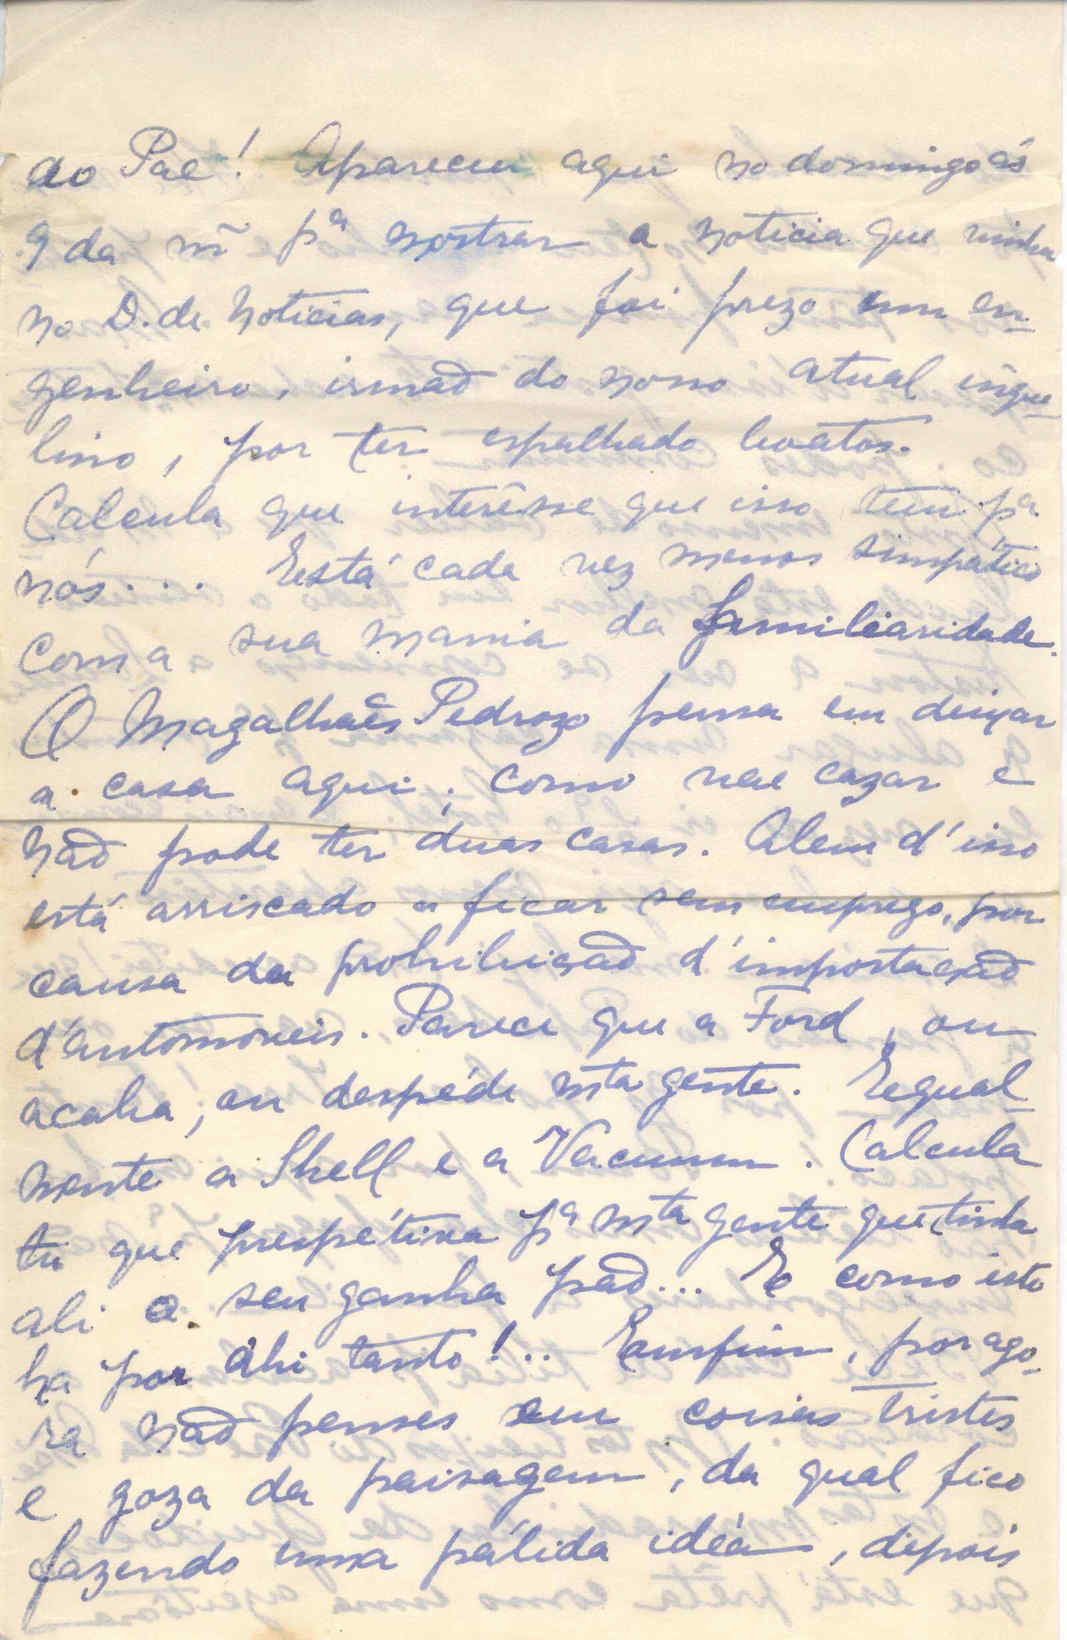 ao Pae! Apareceu aqui no domingo ás
9 da mã pª mostrar a noticia que vinha
no D. de Noticias, que foi prezo um en-
genheiro, irmaõ do nosso atual inque-
lino, por ter espalhado boatos.
Calcula que interêsse que isso tem pª
nós... Está cada vez menos simpático
com a sua mania da familiaridade.
O Magalhaẽs Pedrozo pensa em deixar
a casa aqui, como vae cazar e
naõ pode ter duas casas. Alem d'isso
está arriscado a ficar sem emprego, por
causa da prohibiçaõ d'importaçaõ
d'automoveis. Parece que a Ford, ou
acaba, ou despéde mta gente. Egual-
mente a Shell e a Vacuum. Calcula
tu que prespétiva pª mta gente que tinha
ali o seu ganha paõ... E como isto
ha por ahi tanto!.. Emfim, por ago-
ra naõ penses em coisas tristes
e goza da paisagem, da qual fico
fazendo uma pálida idéa, depois